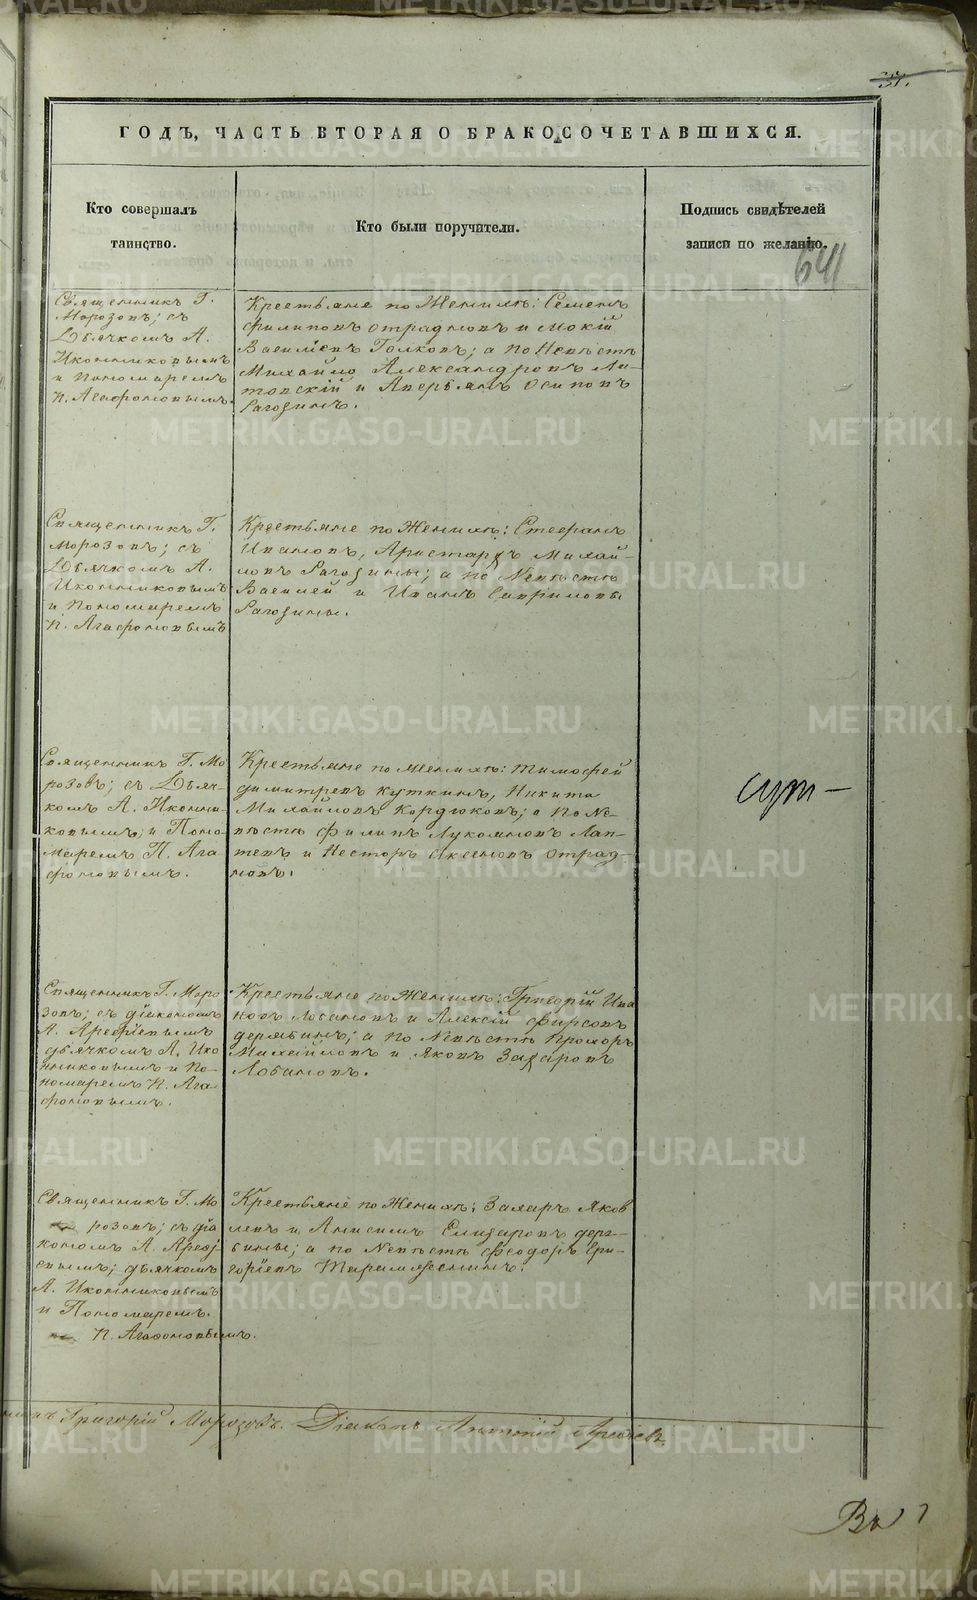 31.
ГОДЪ, ЧАСТЬ ВТОРАЯ О БРАКОСОЧЕТАВШИХСЯ.
Кто совершалъ
таинство.
Кто были поручители.
Подпись свидѣтелей
записи по желанію.
641
Священникъ Г.
Морозовъ; съ
Дьячкомъ А.
Иконниковымъ
и Пономаремъ
П. Агафоновымъ.
Крестьяне по Женихѣ: Семенъ
Филиповъ Отрадновъ и Мокій
Васильевъ Голковъ; а по Невѣстѣ
Михайло Александровъ Ли-
товскій и Аверьянъ Осиповъ
Рагозинъ.
Священникъ Г.
Морозовъ; съ
Дьячкомъ А.
Иконниковымъ
и Пономаремъ
П. Агафоновымъ
Крестьяне по Женихѣ: Стефанъ
Ивановъ, Аристархъ Михай-
ловъ Рагозины; а по Невѣстѣ
Василей и Иванъ Гавриловы
Рагозины.
Священникъ Г. Мо
розовъ; съ Дьяч-
комъ А. Иконни-
ковымъ; и Поно
маремъ П. Ага
фоновымъ.
Крестьяне по Женихѣ: Тимофей
Димитревъ Куткинъ, Никита
Михайловъ Кордюковъ; а по Не-
вѣстѣ Филипъ Лукояновъ Лап-
тевъ и Несторъ Аксеновъ Отрад-
новъ.
Священникъ Г. Моро
зовъ; съ діакономъ
А. Арефьевымъ
дьячкомъ А. Ико
нниковымъ и По-
номаремъ П. Ага-
фоновымъ.
Крестьяне по Женихѣ: Григорій Ива
новъ Лобановъ и Алексій Фирсовъ
дерябинъ; а по Невѣстѣ Прохоръ
Михайловъ и Яковъ Захаровъ
Лобановъ.
Священникъ Г. Мо
розовъ; съ діа
кономъ А. Арефь
евымъ; дьячкомъ
А. Иконниковымъ
и Пономаремъ
П. Агафоновымъ.
Крестьяне по Женихѣ: Захаръ Яков
левъ и Анисимъ Елизаровъ деря-
бины; а по Невѣстѣ Феодоръ Гри-
горіевъ
сут-
Григорій Морозовъ. Діаконъ Антоній Арефьевъ
METRIKI.GASO-URAL.RU